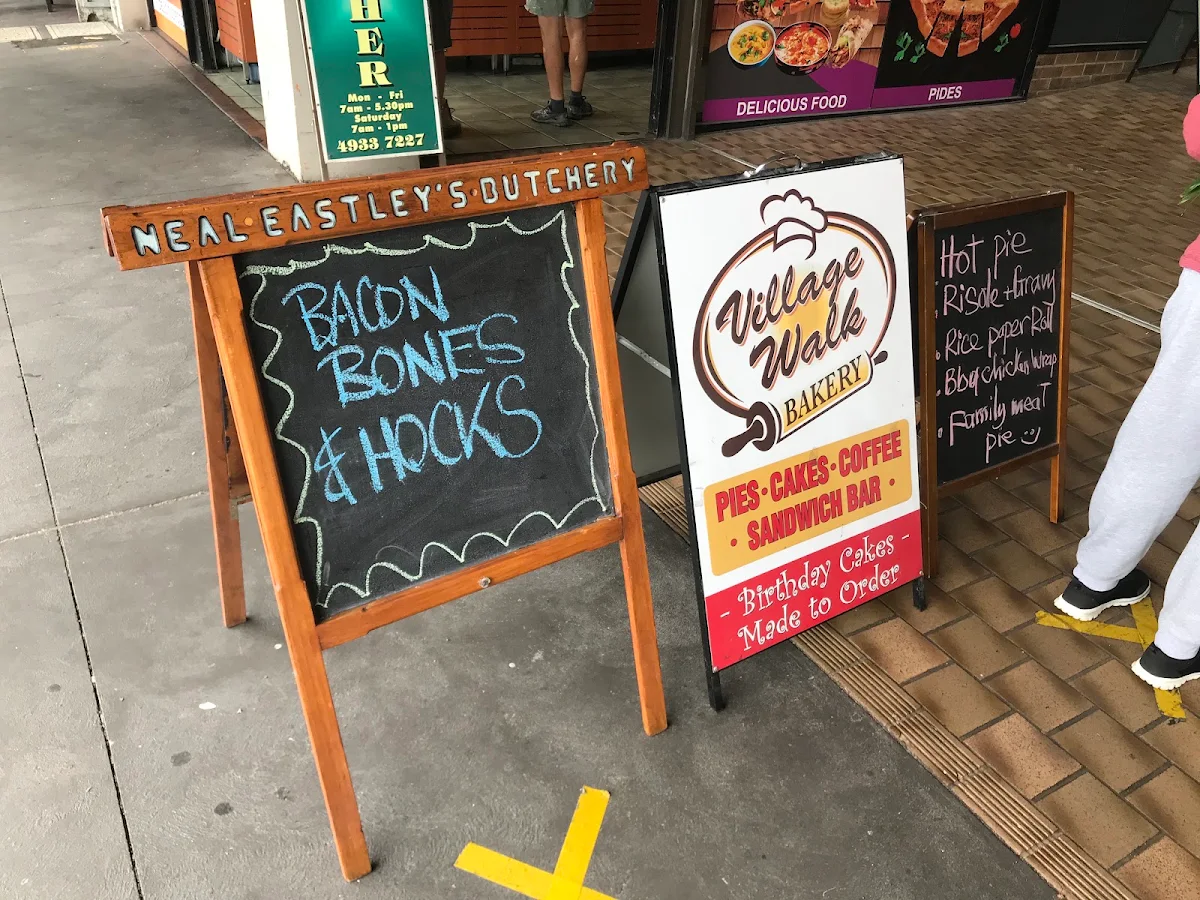 HER
Mon - Fri
7am - 5.30pm
Saturday
7am - 1pm
4933 7227
DELICIOUS FOOD
PIDES
NEAL EASTLEY'S BUTCHERY
BACON
BONES
& HOCKS
Village
Walk
BAKERY
PIES • CAKES • COFFEE
• SANDWICH BAR •
- Birthday Cakes -
Made to Order
Hot pie
Risole + Gravy
Rice paper Roll
BbQ chicken wrap
Family meat
pie